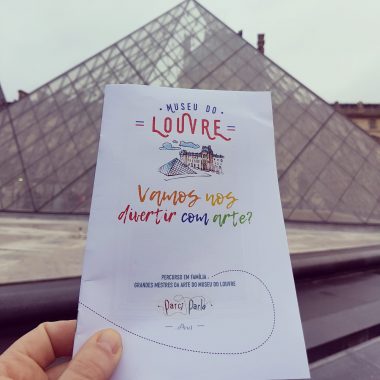 MUSEU DO
LOUVRE
Vamos nos
divertir com arte?
PERCURSO EM FAMÍLIA -
GRANDES MESTRES DA ARTE DO MUSEU DO LOUVRE
Parci Parla
Paris